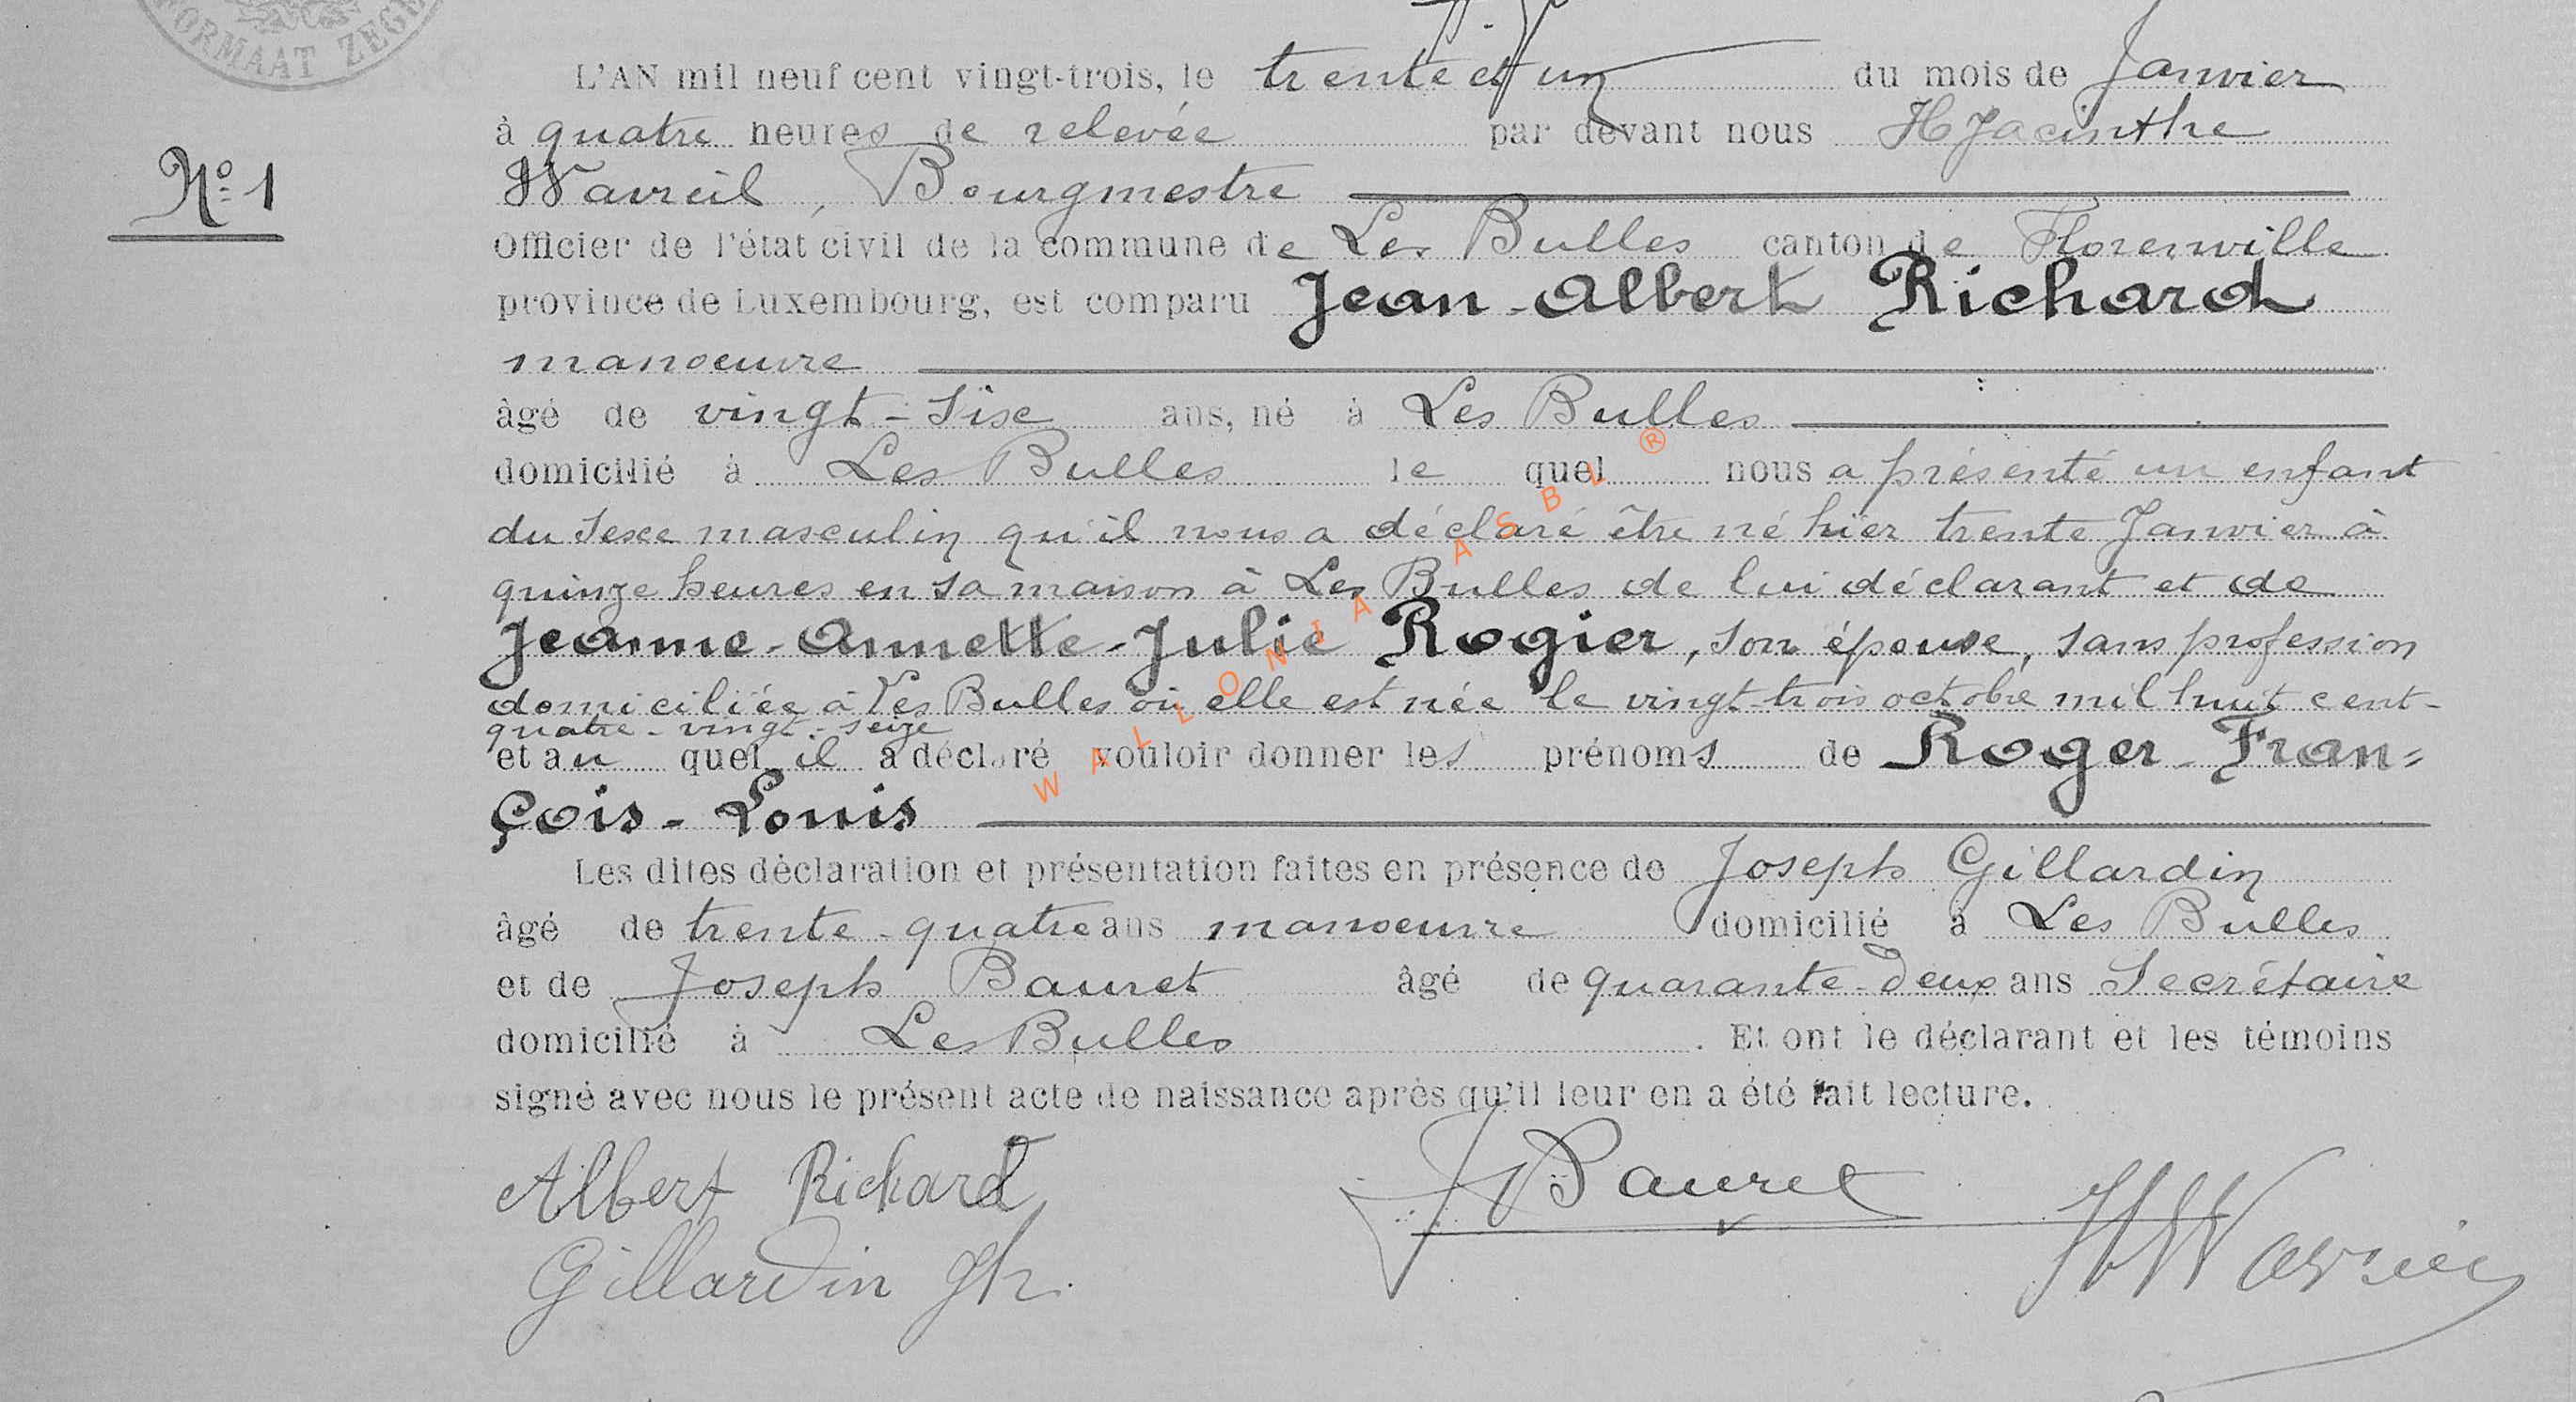 FORMAAT ZEGE
L'AN mil neuf cent vingt-trois, le trente et un du mois de Janvier
à quatre heures de relevée par devant nous Hyacinthe
N° 1
Wavreil, Bourgmestre
Officier de l'état civil de la commune de Les Bulles canton de Florenville
province de Luxembourg, est comparu Jean-Albert Richard
manoeuvre
âgé de vingt-six ans, né à Les Bulles
domicilié à Les Bulles le quel nous a présenté un enfant
du sexe masculin qu'il nous a déclaré être né hier trente Janvier à
quinze heures en sa maison à Les Bulles de lui déclarant et de
Jeanne-Annette-Julie Rogier, son épouse, sans profession
domiciliée à Les Bulles où elle est née le vingt-trois octobre mil huit cent-
quatre-vingt-seize
et au quel il a déclaré vouloir donner les prénoms de Roger-Fran=
çois-Louis
Les dites déclaration et présentation faites en présence de Joseph Gillardin
âgé de trente-quatre ans manoeuvre domicilié à Les Bulles
et de Joseph Bauret âgé de quarante-deux ans Secrétaire
domicilié à Les Bulles. Et ont le déclarant et les témoins
signé avec nous le présent acte de naissance après qu'il leur en a été fait lecture.
Albert Richard
J Bauret
Gillardin Jh.
WALLONIA ASBL ®